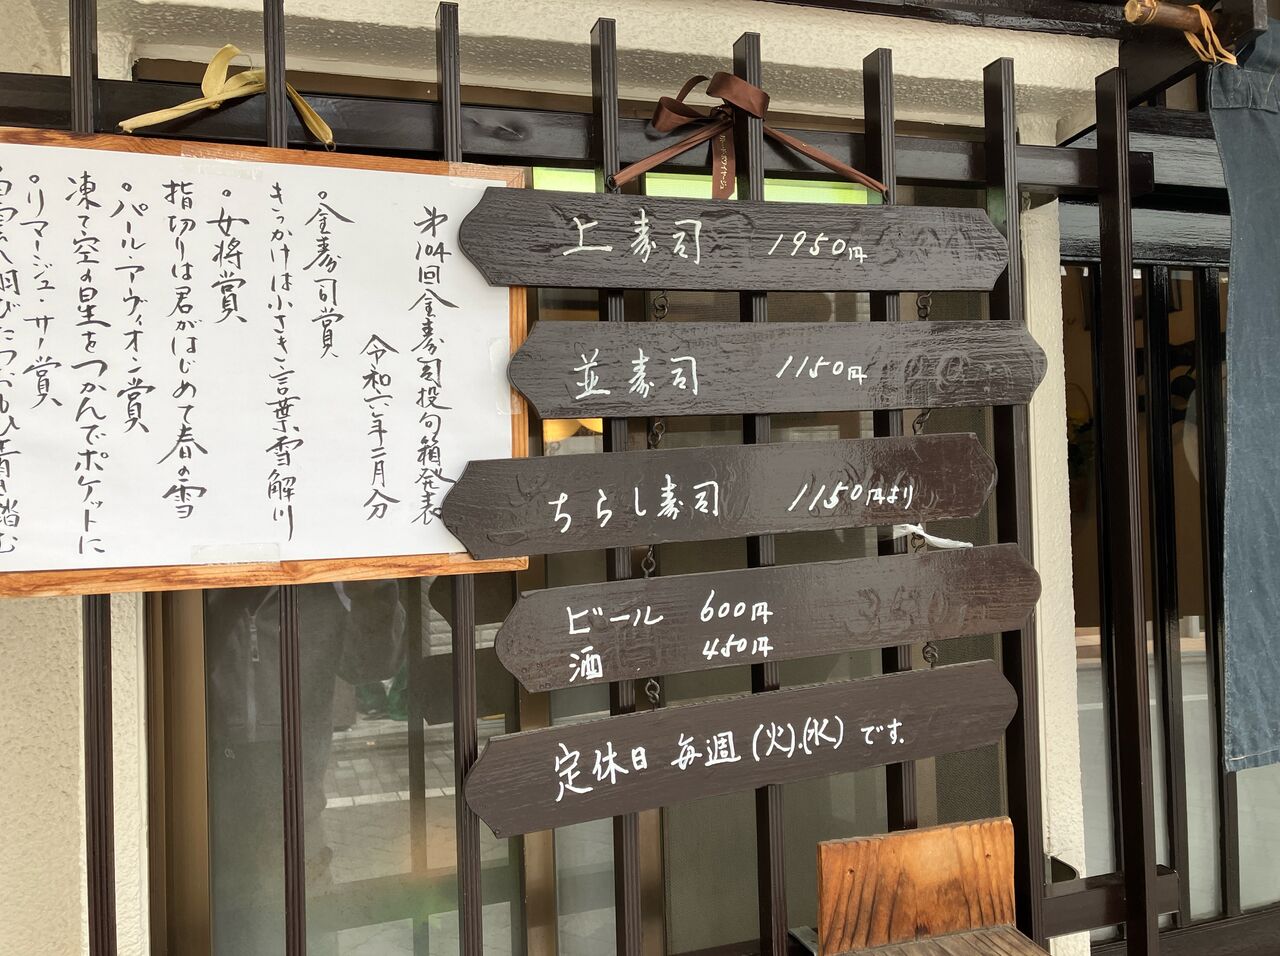 第104回金寿司投句箱発表
令和六年二月分
○金寿司賞
きっかけは小さき言葉雪解川
○女将賞
指切りは君がはじめて春の雪
○パール・アヴィオン賞
凍て空の星をつかんでポケットに
○リマージュ・サノ賞
上寿司 1950円
並寿司 1150円
ちらし寿司 1150円より
ビール 600円
酒 450円
定休日 毎週(火).(水)です.